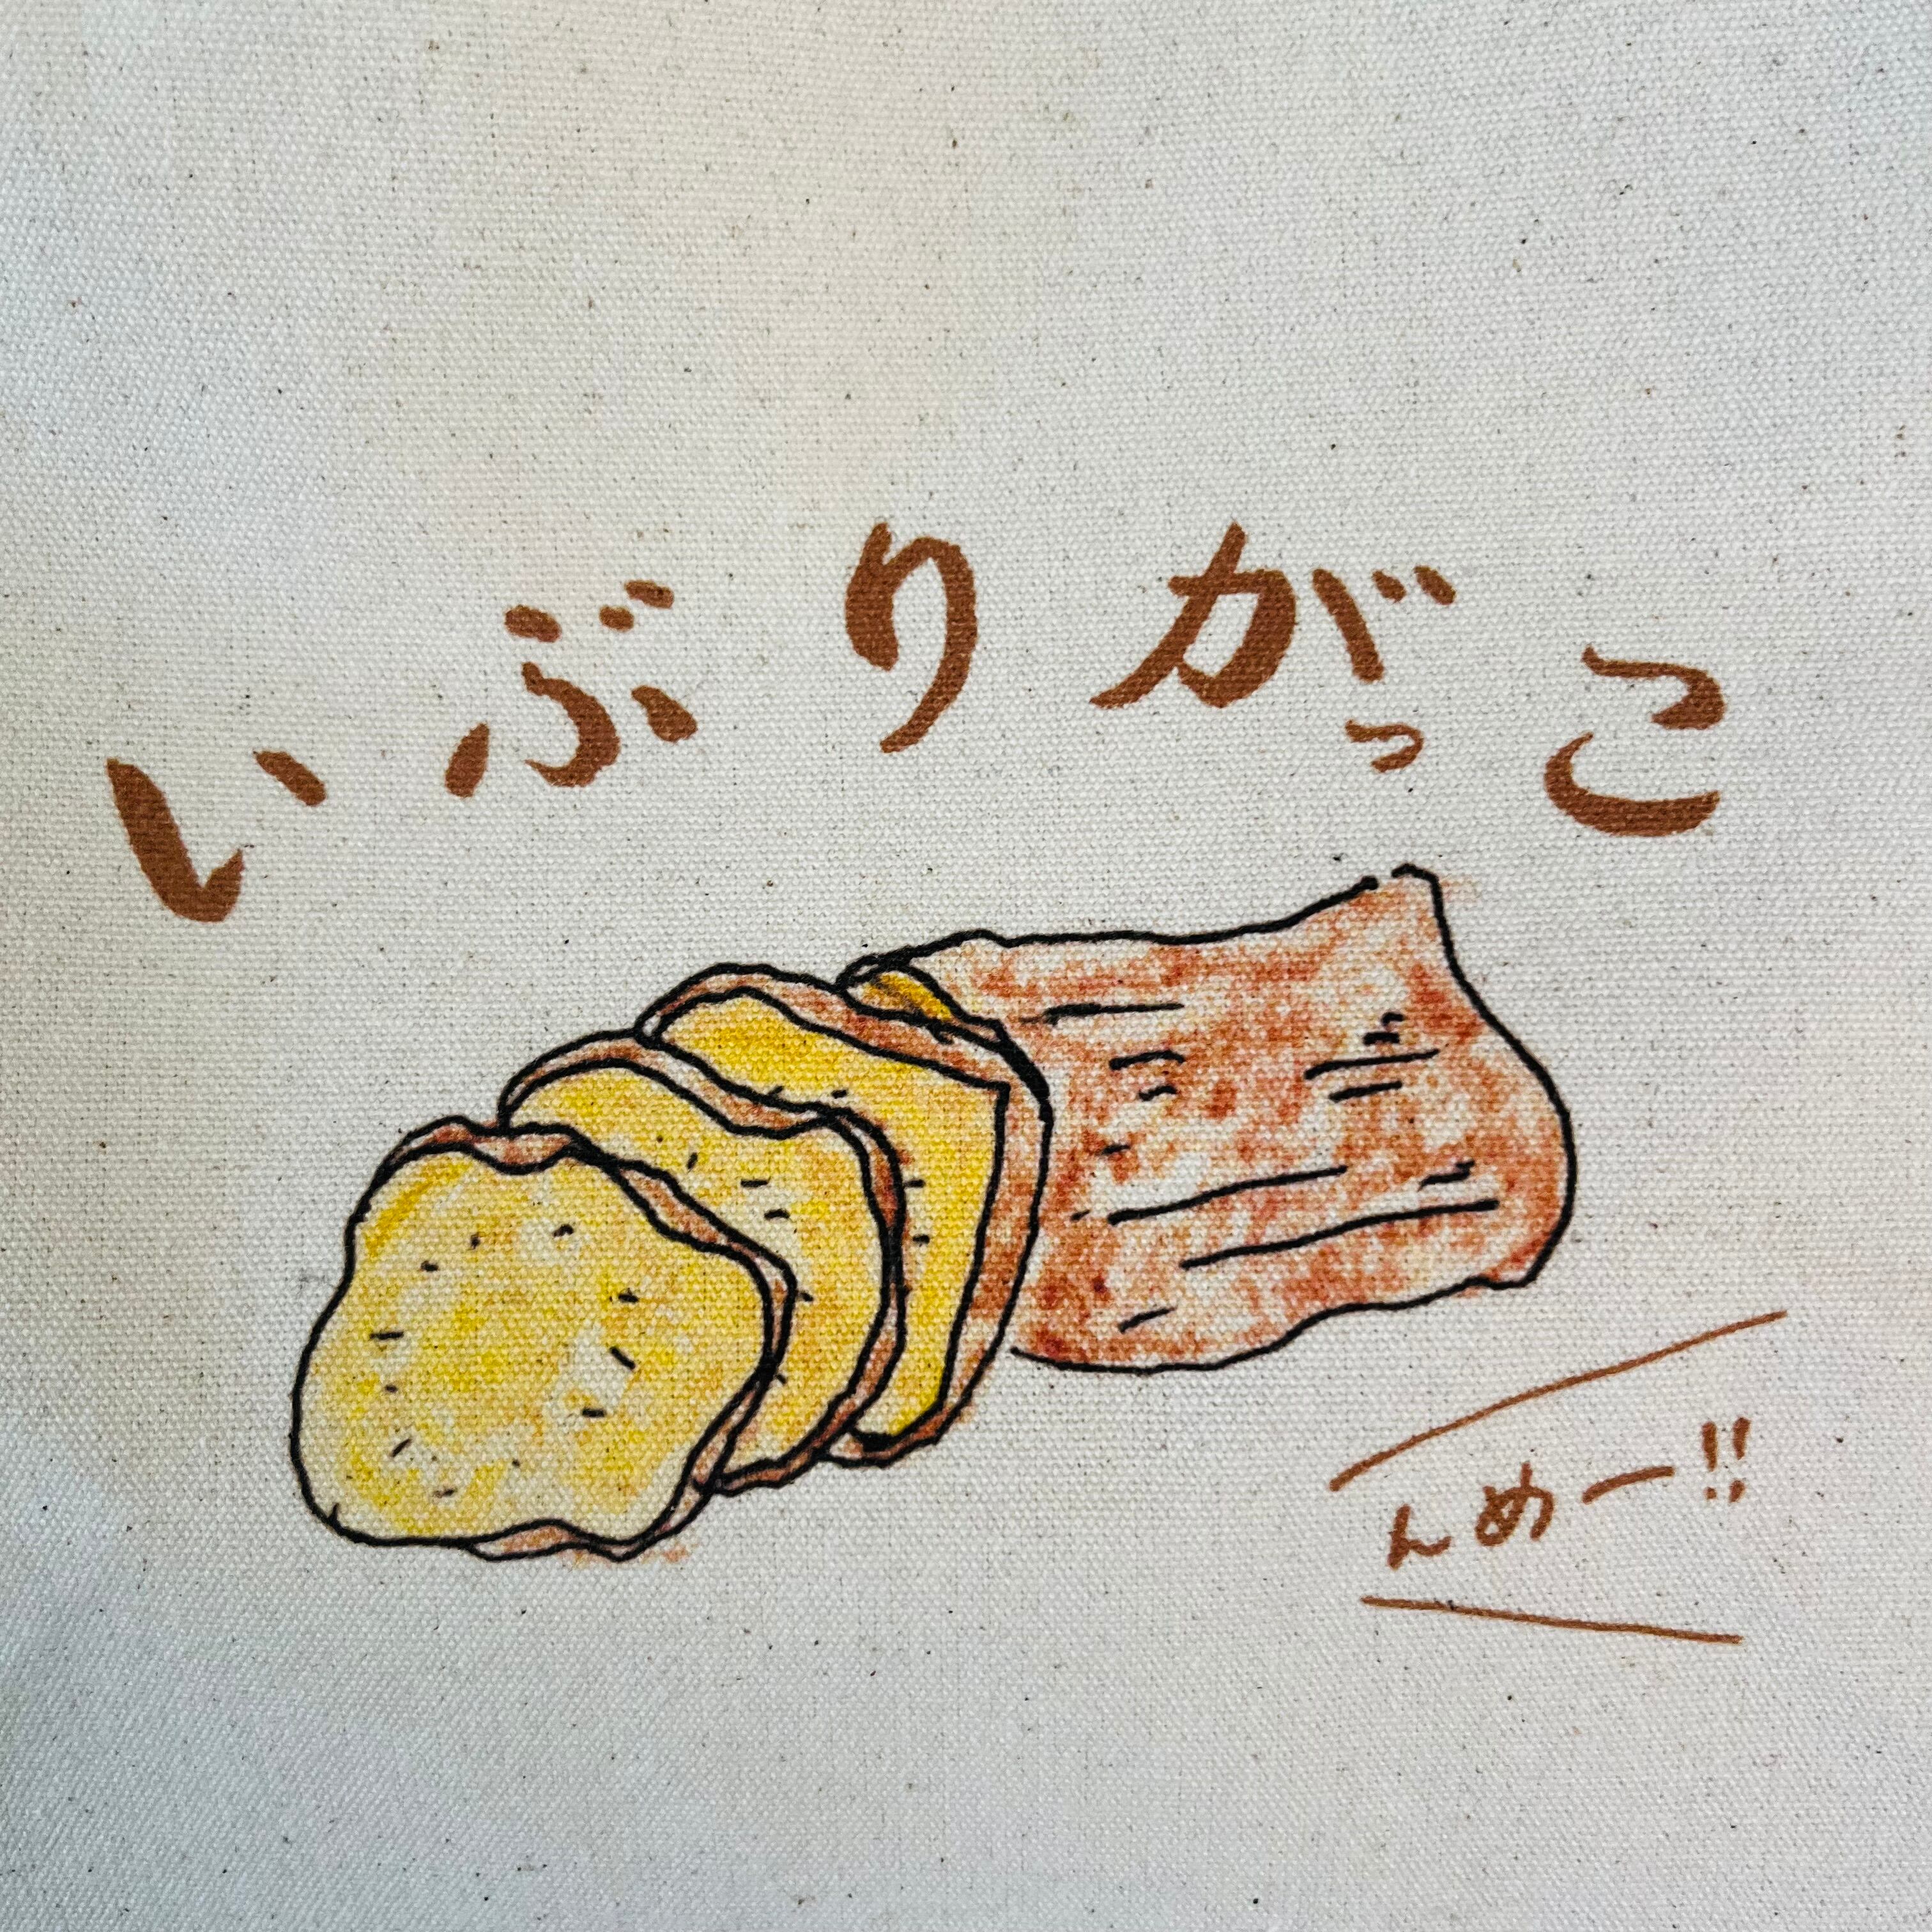 いぶりがっこ
んめー!!